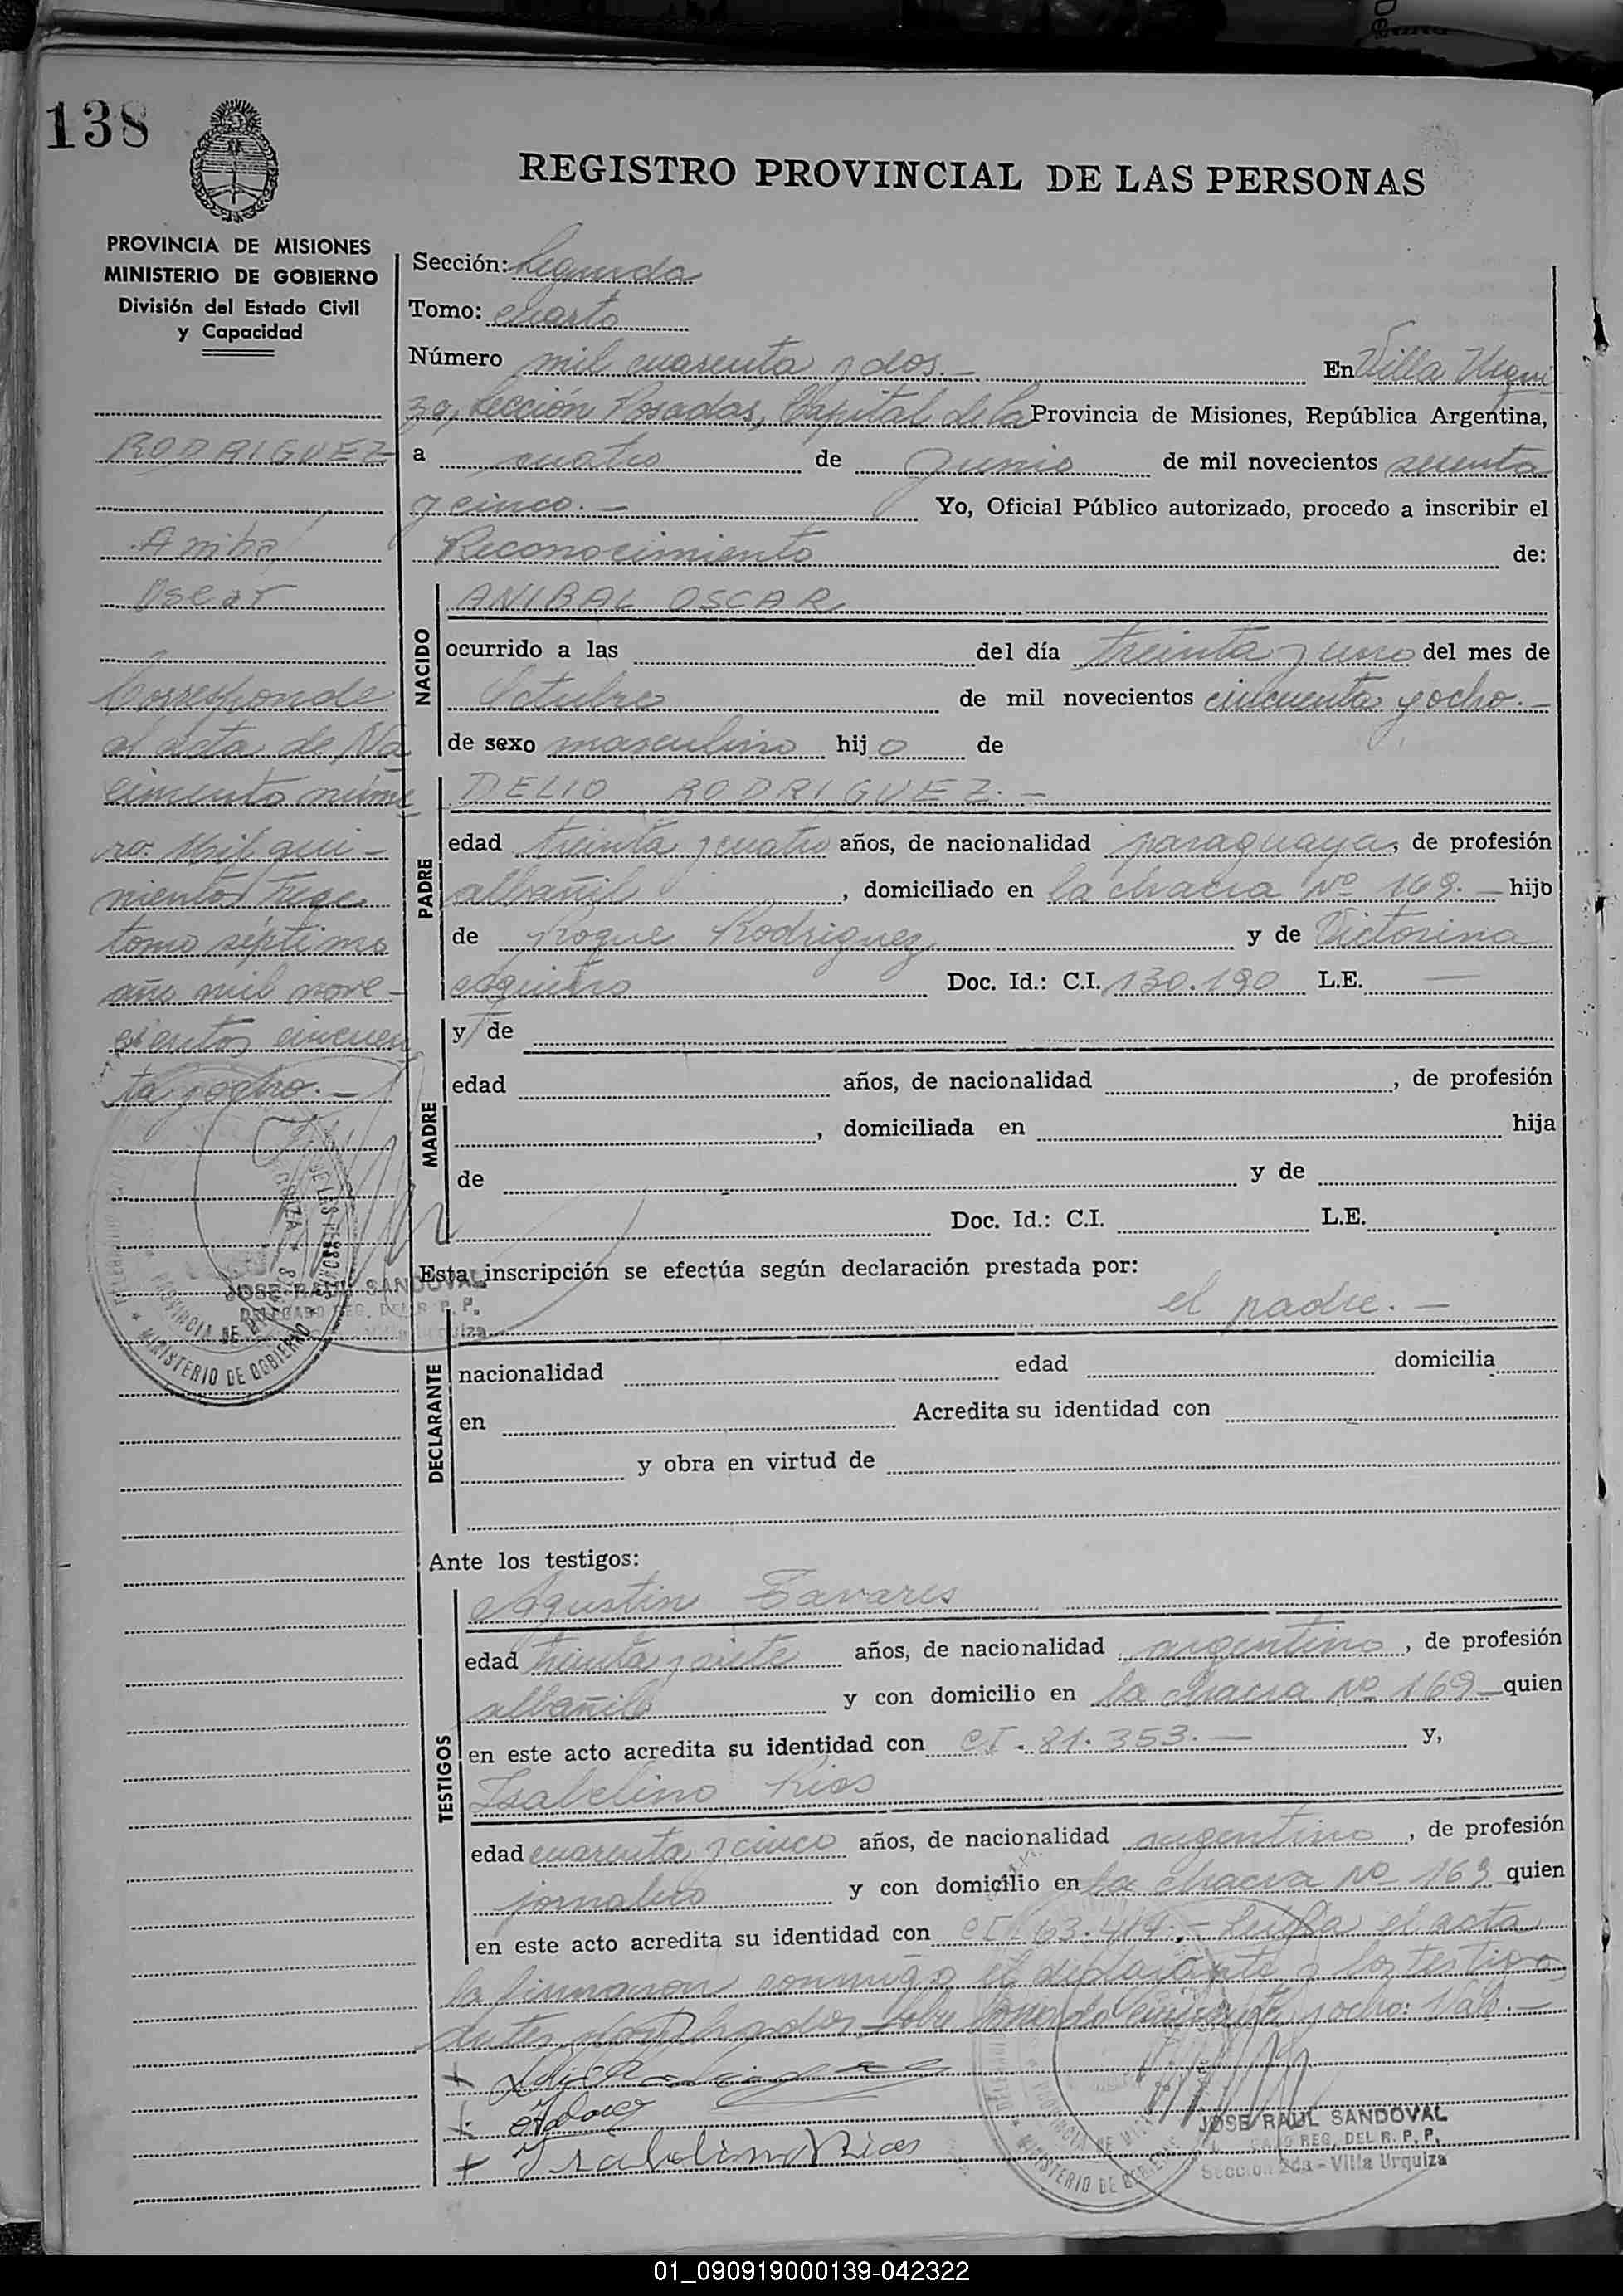 138
REGISTRO PROVINCIAL DE LAS PERSONAS
PROVINCIA DE MISIONES
MINISTERIO DE GOBIERNO
División del Estado Civil
y Capacidad
RODRIGUEZ
Anibal
Oscar
Corresponde
al acta de Na
cimiento núme
ro. Mil qui-
nientos trece
tomo séptimo
año mil nove-
cientos cincuen
ta y ocho.-
JOSE RAUL SANDOVAL
DELEGADO REG. DEL R. P. P.
Villa Urquiza
PROVINCIA DE
MINISTERIO DE GOBIERNO
Sección: Segunda
Tomo: cuarto
Número mil cuarenta y dos.- En Villa Urqui
za, Sección Posadas, Capital de la Provincia de Misiones, República Argentina,
a cuatro de Junio de mil novecientos sesenta
y cinco.- Yo, Oficial Público autorizado, procedo a inscribir el
Reconocimiento de:
NACIDO
ANIBAL OSCAR
ocurrido a las del día treinta y uno del mes de
Octubre de mil novecientos cincuenta y ocho.-
de sexo masculino hijo de
PADRE
DELIO RODRIGUEZ.-
edad treinta y cuatro años, de nacionalidad paraguaya, de profesión
albañil, domiciliado en la chacra Nº 169.- hijo
de Roque Rodriguez y de Victorina
Doc. Id.: C.I. 130.190 L.E. —
MADRE
y de
edad años, de nacionalidad , de profesión
, domiciliada en hija
de y de
Doc. Id.: C.I. L.E.
Esta inscripción se efectúa según declaración prestada por:
el padre.-
DECLARANTE
nacionalidad edad domicilia
en Acredita su identidad con
y obra en virtud de
Ante los testigos:
TESTIGOS
Agustin Tavares
edad treinta y siete años, de nacionalidad argentino, de profesión
albañil y con domicilio en la chacra Nº 169 quien
en este acto acredita su identidad con CI. 81.353.- y,
Isabelino Rios
edad cuarenta y cinco años, de nacionalidad argentino, de profesión
jornalero y con domicilio en la chacra Nº 169 quien
en este acto acredita su identidad con CI. 63.414.- Leída el acta
la firmaron conmigo el declarante y los testigos
antes nombrados. Sobre borrado cincuenta y ocho: Vale.-
+
+
+ Isabelino Rios
JOSE RAUL SANDOVAL
REG. DEL R. P. P.
Sección 2da - Villa Urquiza
MINISTERIO DE GOBIERNO
01_090919000139-042322